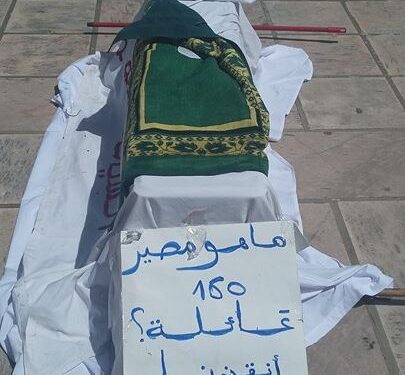 ما هو مصير
160
عائلة؟
أنقذونا